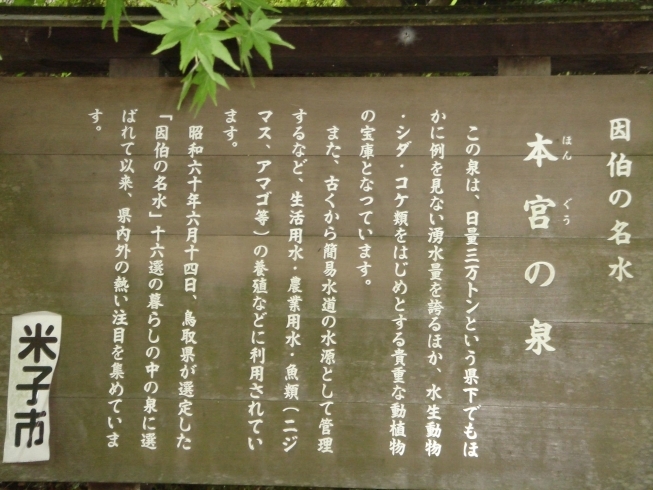 因伯の名水
本宮の泉
ほん ぐう
この泉は、日量三万トンという県下でもほ
かに例を見ない湧水量を誇るほか、水生動物
・シダ・コケ類をはじめとする貴重な動植物
の宝庫となっています。
また、古くから簡易水道の水源として管理
するなど、生活用水・農業用水・魚類（ニジ
マス、アマゴ等）の養殖などに利用されてい
ます。
昭和六十年六月十四日、鳥取県が選定した
「因伯の名水」十六選の暮らしの中の泉に選
ばれて以来、県内外の熱い注目を集めていま
す。
米子市